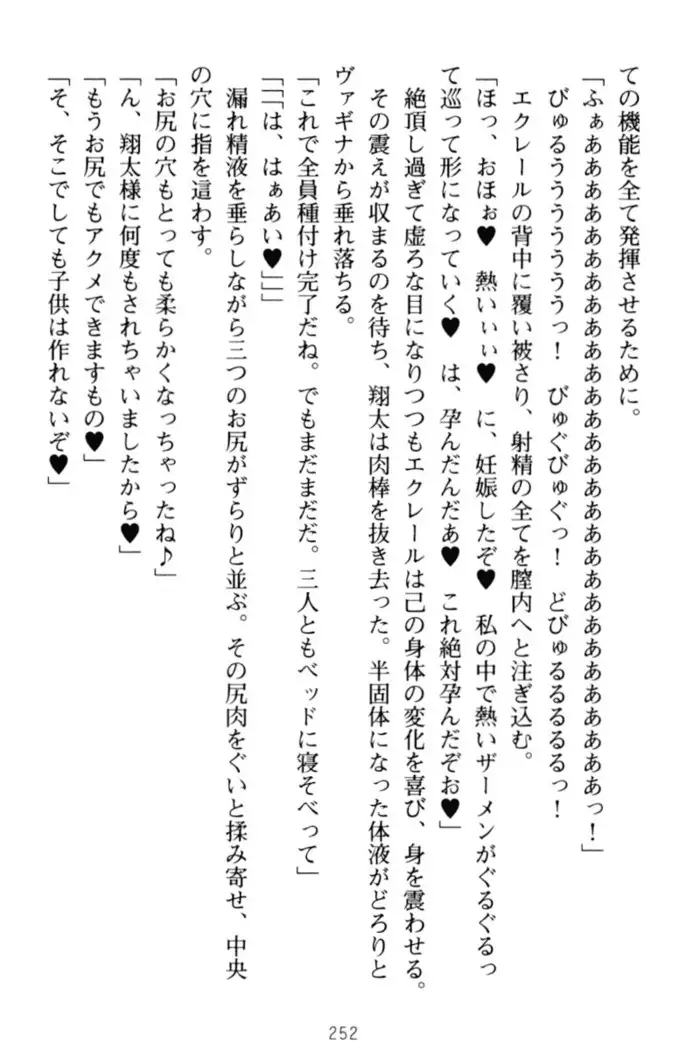 ての機能を全て発揮させるために。
「ふぁあああああああああああああああああああああああああああっ！」
びゅるううううううっ！　びゅぐびゅぐっ！　どびゅるるるるるっ！
エクレールの背中に覆い被さり、射精の全てを膣内へと注ぎ込む。
「ほっ、おほぉ♥　熱いぃぃ♥　に、妊娠したぞ♥　私の中で熱いザーメンがぐるぐるっ
て巡って形になっていく♥　は、孕んだんだあ♥　これ絶対孕んだぞお♥」
絶頂し過ぎて虚ろな目になりつつもエクレールは己の身体の変化を喜び、身を震わせる。
その震えが収まるのを待ち、翔太は肉棒を抜き去った。半固体になった体液がどろりと
ヴァギナから垂れ落ちる。
「これで全員種付け完了だね。でもまだまだだ。三人ともベッドに寝そべって」
「「「は、はぁあい♥」」」
漏れ精液を垂らしながら三つのお尻がずらりと並ぶ。その尻肉をぐいと揉み寄せ、中央
の穴に指を這わす。
「お尻の穴もとっても柔らかくなっちゃったね♪」
「ん、翔太様に何度もされちゃいましたから♥」
「もうお尻でもアクメできますもの♥」
「そ、そこでしても子供は作れないぞ♥」
252